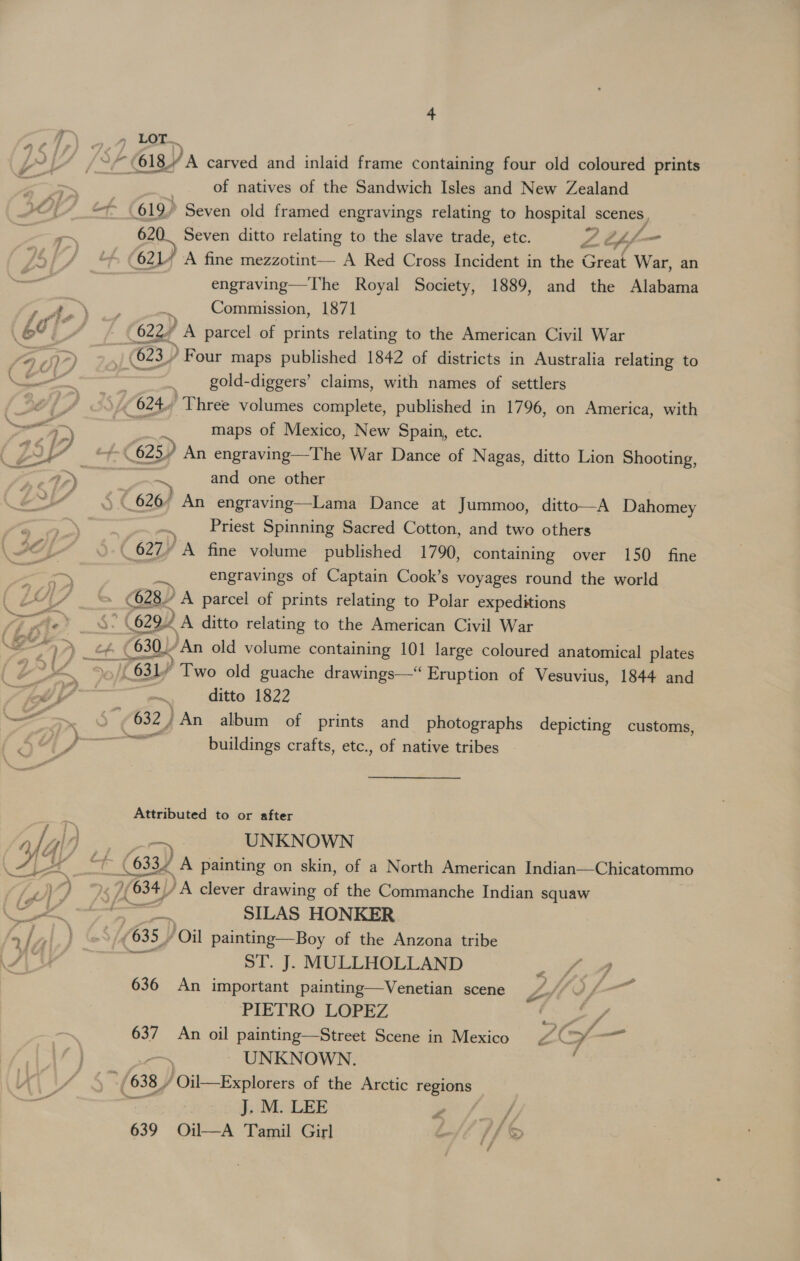 4
LOT
618 A carved and inlaid frame containing four old coloured prints
of natives of the Sandwich Isles and New Zealand
619 Seven old framed engravings relating to hospital scenes
620 Seven ditto relating to the slave trade, etc.
621 A fine mezzotint— A Red Cross Incident in the Great War, an
engraving—The Royal Society, 1889, and the Alabama
Commission, 1871
622 A parcel of prints relating to the American Civil War
623 Four maps published 1842 of districts in Australia relating to
gold-diggers' claims, with names of settlers
624 Three volumes complete, published in 1796, on America, with
maps of Mexico, New Spain, etc.
625 An engraving—The War Dance of Nagas, ditto Lion Shooting,
and one other
626 An engraving—Lama Dance at Jummoo, ditto—A Dahomey
Priest Spinning Sacred Cotton, and two others
627 A fine volume published 1790, containing over 150 fine
engravings of Captain Cook's voyages round the world
628 A parcel of prints relating to Polar expeditions
629 A ditto relating to the American Civil War
630 An old volume containing 101 large coloured anatomical plates
631 Two old guache drawings—“ Eruption of Vesuvius, 1844 and
ditto 1822
632 An album of prints and photographs depicting customs,
buildings crafts, etc., of native tribes
Attributed to or after
UNKNOWN
633 A painting on skin, of a North American Indian—Chicatommo
634 A clever drawing of the Commanche Indian squaw
SILAS HONKER
635 Oil painting—Boy of the Anzona tribe
ST. J. MULLHOLLAND
636 An important painting—Venetian scene
PIETRO LOPEZ
637 An oil painting—Street Scene in Mexico
UNKNOWN.
638 Oil—Explorers of the Arctic regions
J. M. LEE
639 Oil—A Tamil Girl